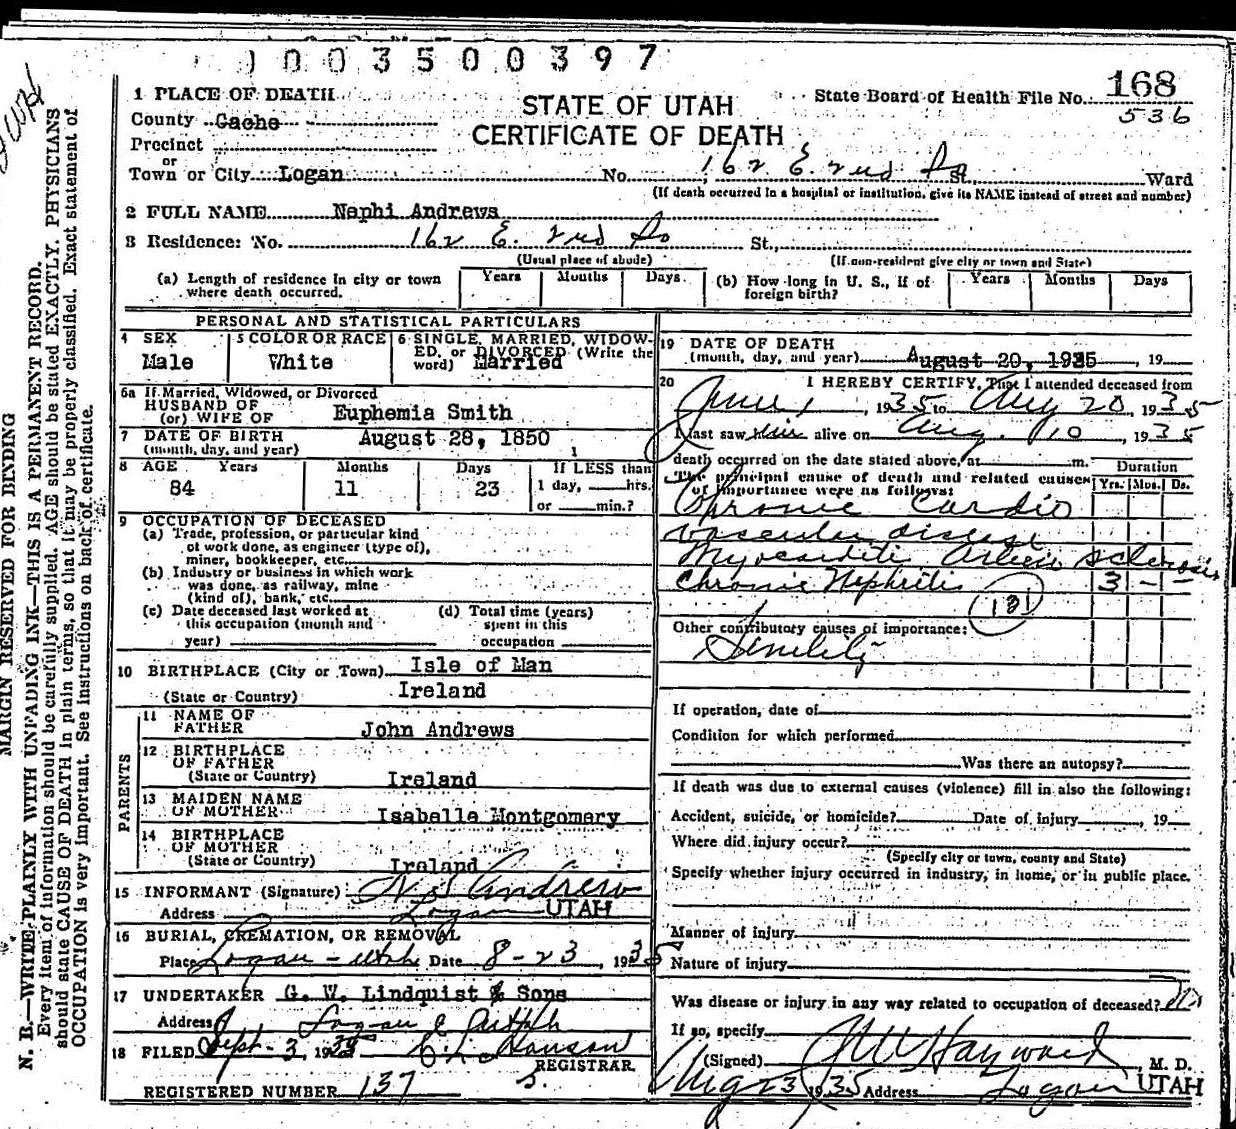 1003500397
168
1 PLACE OF DEATH
STATE OF UTAH
State Board of Health File No.
536
County Cache
CERTIFICATE OF DEATH
Precinct
or
Town or City Logan No. 162 E. 2nd So St. Ward
(If death occurred in a hospital or institution, give its NAME instead of street and number)
2 FULL NAME Nephi Andrews
3 Residence: No. 162 E. 2nd So St.,
(Usual place of abode) (If non-resident give city or town and State)
(a) Length of residence in city or town where death occurred. Years Months Days (b) How long in U. S., if of foreign birth? Years Months Days
PERSONAL AND STATISTICAL PARTICULARS
4 SEX
Male
5 COLOR OR RACE
White
6 SINGLE, MARRIED, WIDOW-
ED, or DIVORCED (Write the
word) Married
6a If Married, Widowed, or Divorced
HUSBAND OF
(or) WIFE OF Euphemia Smith
7 DATE OF BIRTH August 28, 1850
(month, day, and year)
8 AGE Years Months Days If LESS than
84 11 23 1 day, hrs.
or min.?
9 OCCUPATION OF DECEASED
(a) Trade, profession, or particular kind
of work done, as engineer (type of),
miner, bookkeeper, etc.
(b) Industry or business in which work
was done, as railway, mine
(kind of), bank, etc.
(c) Date deceased last worked at
this occupation (month and
year)
(d) Total time (years)
spent in this
occupation
10 BIRTHPLACE (City or Town) Isle of Man
(State or Country) Ireland
PARENTS
11 NAME OF
FATHER John Andrews
12 BIRTHPLACE
OF FATHER
(State or Country) Ireland
13 MAIDEN NAME
OF MOTHER Isabelle Montgomery
14 BIRTHPLACE
OF MOTHER
(State or Country) Ireland
15 INFORMANT (Signature) Andrew
Address Logan UTAH
16 BURIAL, CREMATION, OR REMOVAL
Place Logan - Utah Date 8-23, 1935
17 UNDERTAKER G. W. Lindquist & Sons
Address Logan Utah
18 FILED Sept. 3, 1935 Hanson
REGISTRAR
REGISTERED NUMBER 137 S.
19 DATE OF DEATH
(month, day, and year) August 20, 1935, 19
20 I HEREBY CERTIFY, That I attended deceased from
June 1, 1935 to Aug 20, 1935
I last saw him alive on Aug. 10, 1935
death occurred on the date stated above, at m.
The principal cause of death and related causes
of importance were as follows:
Duration
Yrs. Mos. Ds.
Chronic Cardio
vascular disease
Myocarditi Arterio Sclerosis
Chronic Nephritis 3 - -
131
Other contributory causes of importance:
Senility
If operation, date of
Condition for which performed
Was there an autopsy?
If death was due to external causes (violence) fill in also the following:
Accident, suicide, or homicide? Date of injury , 19
Where did injury occur?
(Specify city or town, county and State)
Specify whether injury occurred in industry, in home, or in public place.
Manner of injury
Nature of injury
Was disease or injury in any way related to occupation of deceased? No
If so, specify
(Signed) Hayward M. D.
Aug 23 1935 Address Logan UTAH
MARGIN RESERVED FOR BINDING
N. B.—WRITE PLAINLY WITH UNFADING INK—THIS IS A PERMANENT RECORD.
Every item of information should be carefully supplied. AGE should be stated EXACTLY. PHYSICIANS
should state CAUSE OF DEATH in plain terms, so that it may be properly classified. Exact statement of
OCCUPATION is very important. See instructions on back of certificate.